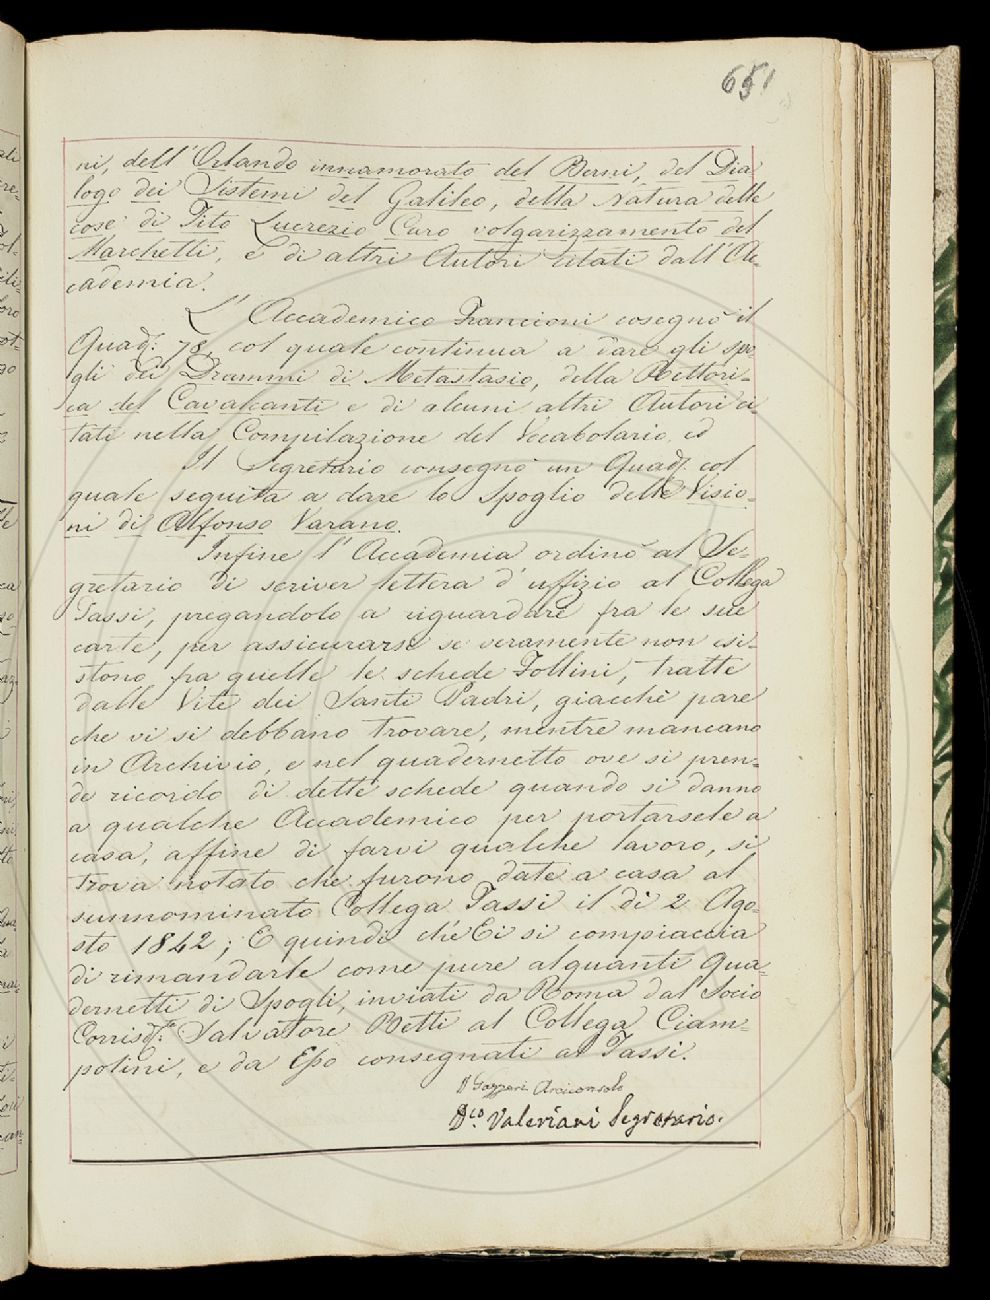 651
ni, dell'Orlando innamorato del Berni, del Dia
logo dei Sistemi del Galileo, della Natura delle
cose di Tito Lucrezio Caro volgarizzamento del
Marchetti, e di altri Autori citati dall'Ac-
cademia.
L'Accademico Francioni cosegnò il
Quad. 78, col quale continua a dare gli spo-
gli dei Drammi di Metastasio, della Rettori-
ca del Cavalcanti e di alcuni altri Autori ci-
tati nella Compilazione del Vocabolario, ed
Il Segretario consegnò un Quad. col
quale seguita a dare lo Spoglio delle Visio-
ni di Alfonso Varano.
Infine l'Accademia ordinò al Se-
gretario di scriver lettera d'uffizio al Collega
Tassi, pregandolo a riguardare fra le sue
carte, per assicurarsi se veramente non esi-
stono fra quelle le schede Follini, tratte
dalle Vite dei Santi Padri, giacchè pare
che vi si debbano trovare, mentre mancano
in Archivio, e nel quadernetto ove si pren-
de ricordo di dette schede quando si danno
a qualche Accademico per portarsele a
casa, affine di farvi qualche lavoro, si
trova notato che furono date a casa al
sunnominato Collega Tassi il dì 2 Ago-
sto 1842; E quindi ch'Ei si compiaccia
di rimandarle come pure alquanti Qua-
dernetti di Spogli, inviati da Roma dal Socio
Corrisp.te Salvatore Betti al Collega Ciam-
polini, e da Esso consegnati al Tassi.
Gazzeri Arciconsolo
D.co Valeriani Segretario.